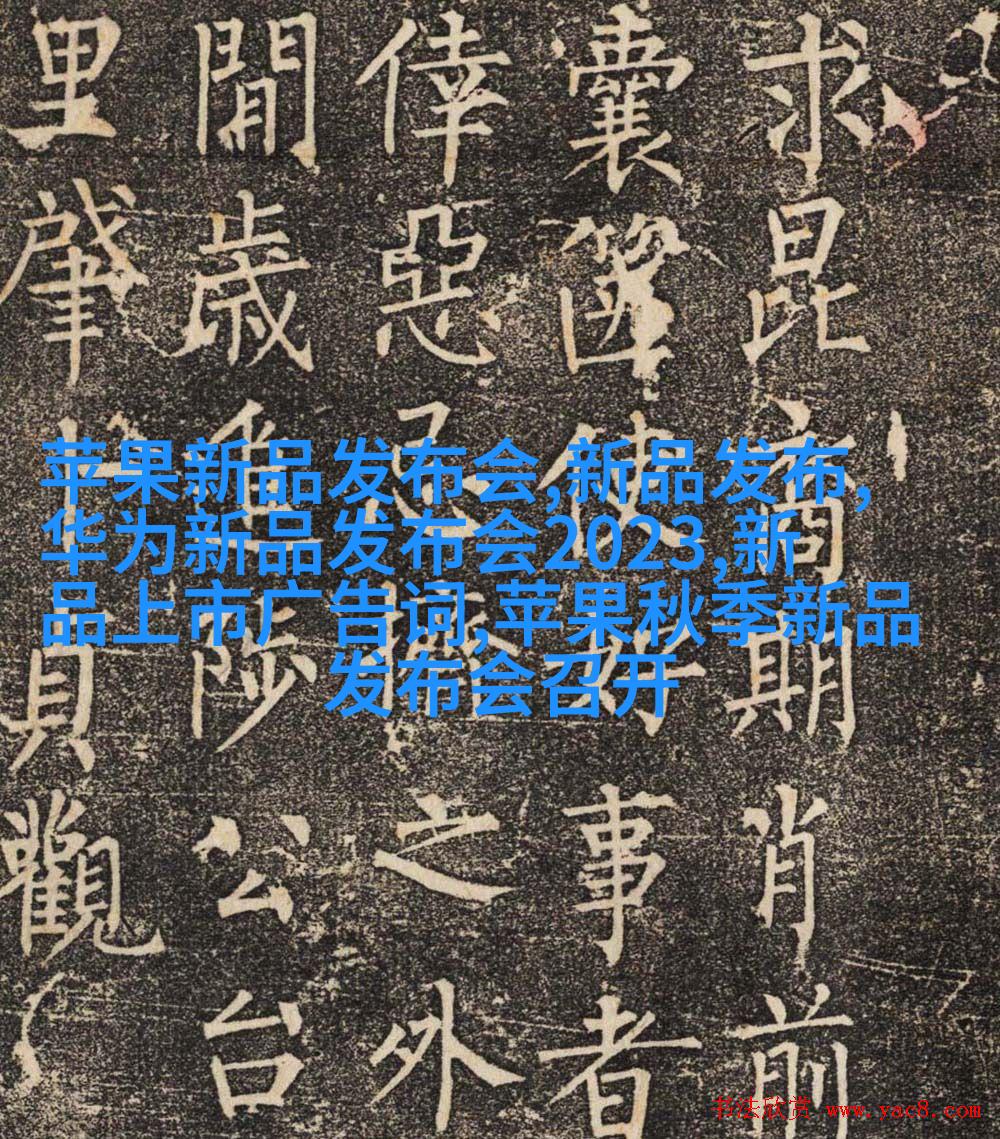 苹果新品发布会,新品发布,
华为新品发布会2023,新
品上市广告词,苹果秋季新品
发布会召开
求昆商期肖前
囊篋使好事者
倖惡忍之外
開歲陟公台
里肇貝觀
书法欣赏 www.yac8.com